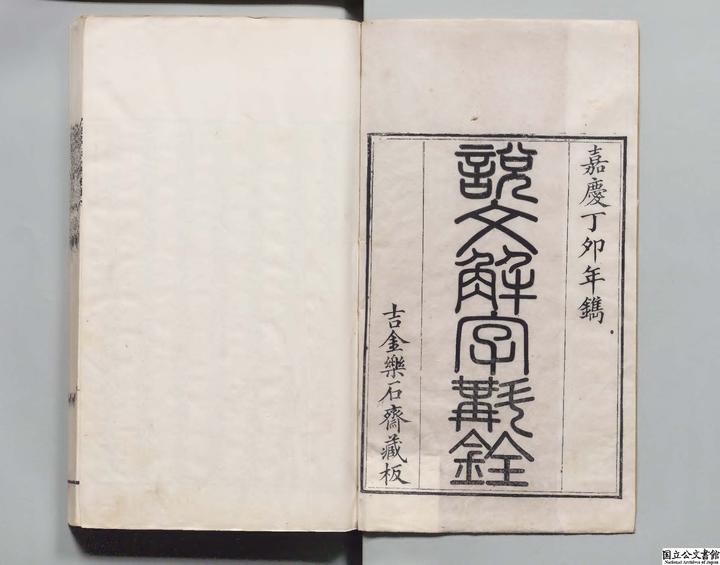 嘉慶丁卯年鐫
說文解字斠銓
吉金樂石齋藏板
国立公文書館
National Archives of Japan